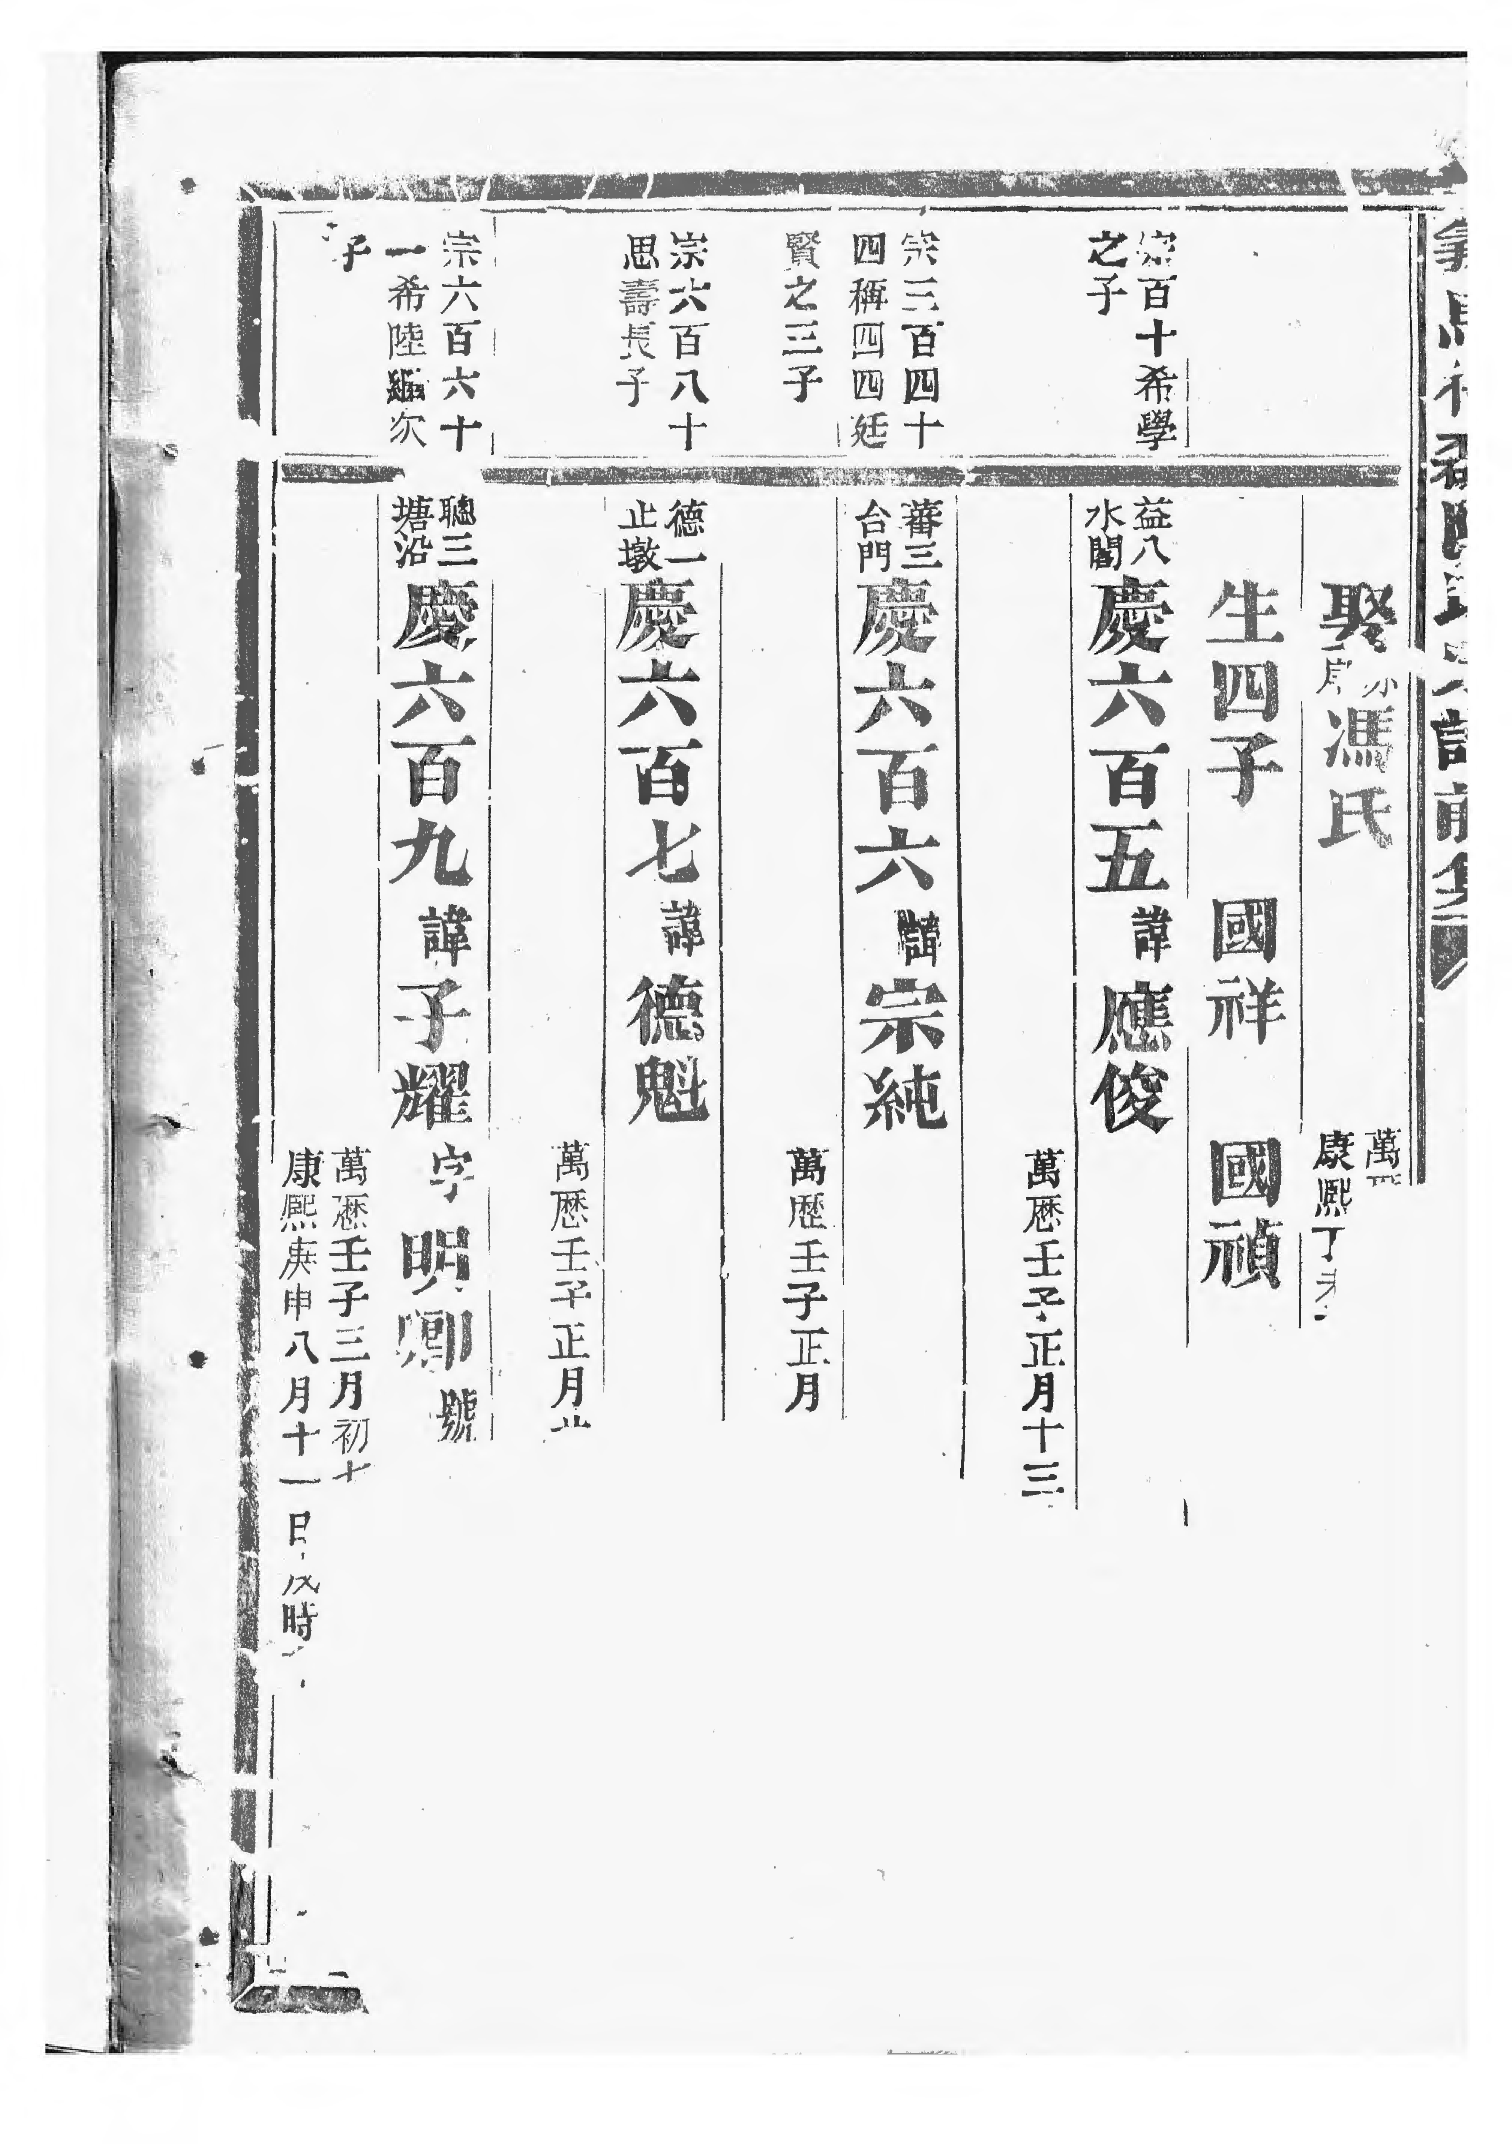 娶馮氏
萬
康熙丁
生四子 國祥 國禎
百十希學
之子
益八
水閣
慶六百五諱應俊
萬歷壬子正月十三
宗三百四十
四稱四四廷
賢之三子
蕃三
台門
慶六百六諱宗純
萬歷壬子正月
宗六百八十
思壽長子
德一
止墩
慶六百七諱德魁
萬歷壬子正月
宗六百六十
一希陸繼次
子
聰三
塘沿
慶六百九諱子耀字明卿號
萬歷壬子三月初
康熙庚申八月十一日戌時